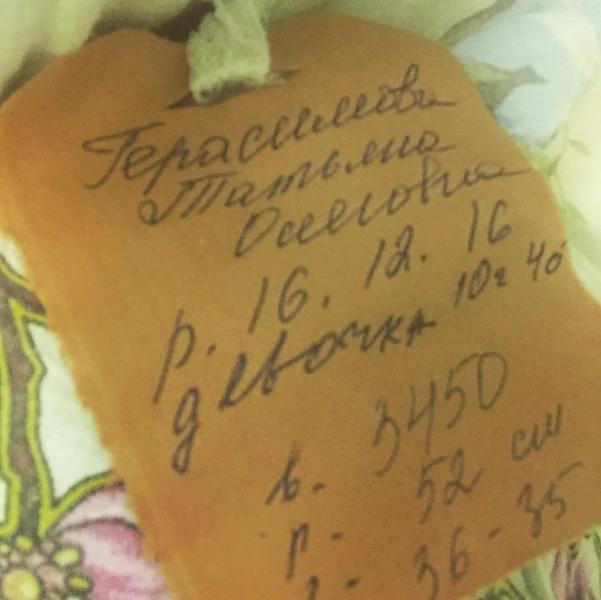 Герасимова
Татьяна
Олеговна
р. 16. 12. 16
девочка 10ч 40
в. 3450
р - 52 см
- 36 - 35